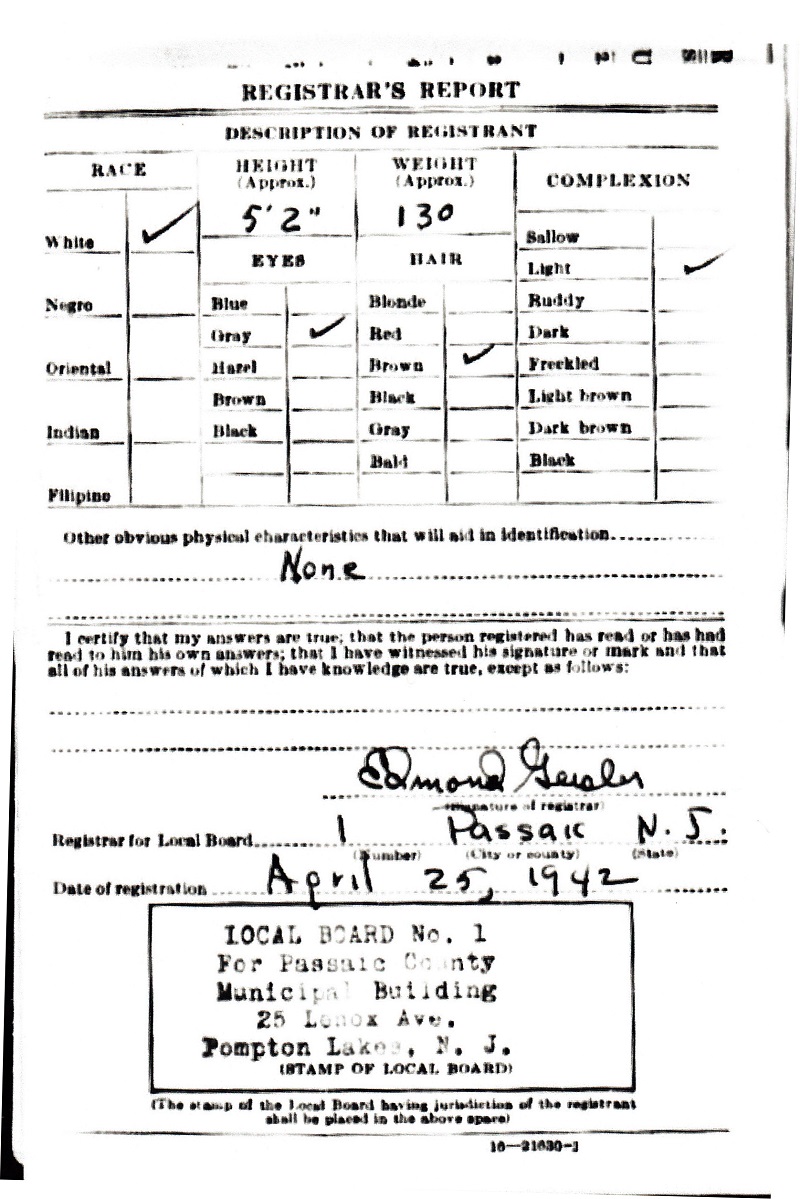 REGISTRAR'S REPORT
DESCRIPTION OF REGISTRANT
RACE
White ✓
Negro
Oriental
Indian
Filipino
HEIGHT
(Approx.)
5'2"
WEIGHT
(Approx.)
130
EYES
Blue
Gray ✓
Hazel
Brown
Black
HAIR
Blonde
Red
Brown ✓
Black
Gray
Bald
COMPLEXION
Sallow
Light ✓
Ruddy
Dark
Freckled
Light brown
Dark brown
Black
Other obvious physical characteristics that will aid in identification
None
I certify that my answers are true; that the person registered has read or has had
read to him his own answers; that I have witnessed his signature or mark and that
all of his answers of which I have knowledge are true, except as follows:
Edmond Geisler
(Signature of registrar)
Registrar for Local Board 1 Passaic N. J.
(Number) (City or county) (State)
Date of registration April 25, 1942
LOCAL BOARD No. 1
For Passaic County
Municipal Building
25 Lenox Ave.
Pompton Lakes, N. J.
(STAMP OF LOCAL BOARD)
(The stamp of the Local Board having jurisdiction of the registrant
shall be placed in the above space)
16—21630-1